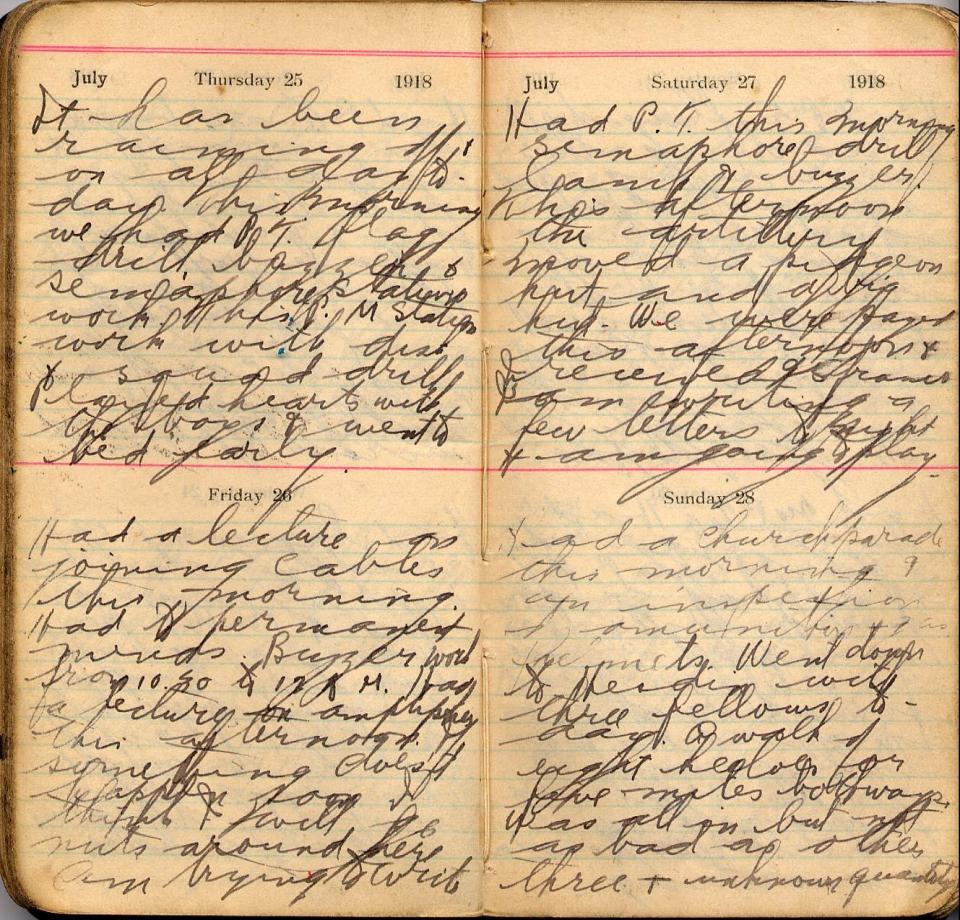 July Thursday 25 1918
It has been
raining off &
on all day to-
day. This morning
we had P.T. flag
drill, buzzer &
semaphore station
work. This P.M. Station
work with discs
& squad drill
Played hearts with
the boys & went to
bed early.
Friday 26
Had a lecture on
joining cables
this morning.
Had to permanent
Buzzer work
from 10.30 to 12 A.M. Had
a lecture on
this afternoon. If
something doesn't
happen soon I
think I will go
nuts around here
Am trying to write
July Saturday 27 1918
Had P.T. this morning
semaphore drill
lamp & buzzer.
This afternoon
the artillery
moved a pidgeon
hut and a big
hut. We were payed
this afternoon &
received 95 francs
Am writing a
few letters to night
& am going to play
Sunday 28
Had a church parade
this morning &
an inspection
of amunition & gas
helmets. Went down
to with
three fellows to-
day. A walk of
eight
five miles both ways.
Was all in but not
as bad as other
three + unknown quantity